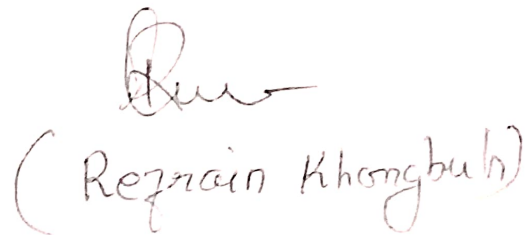 (Refrain Khongbuh)